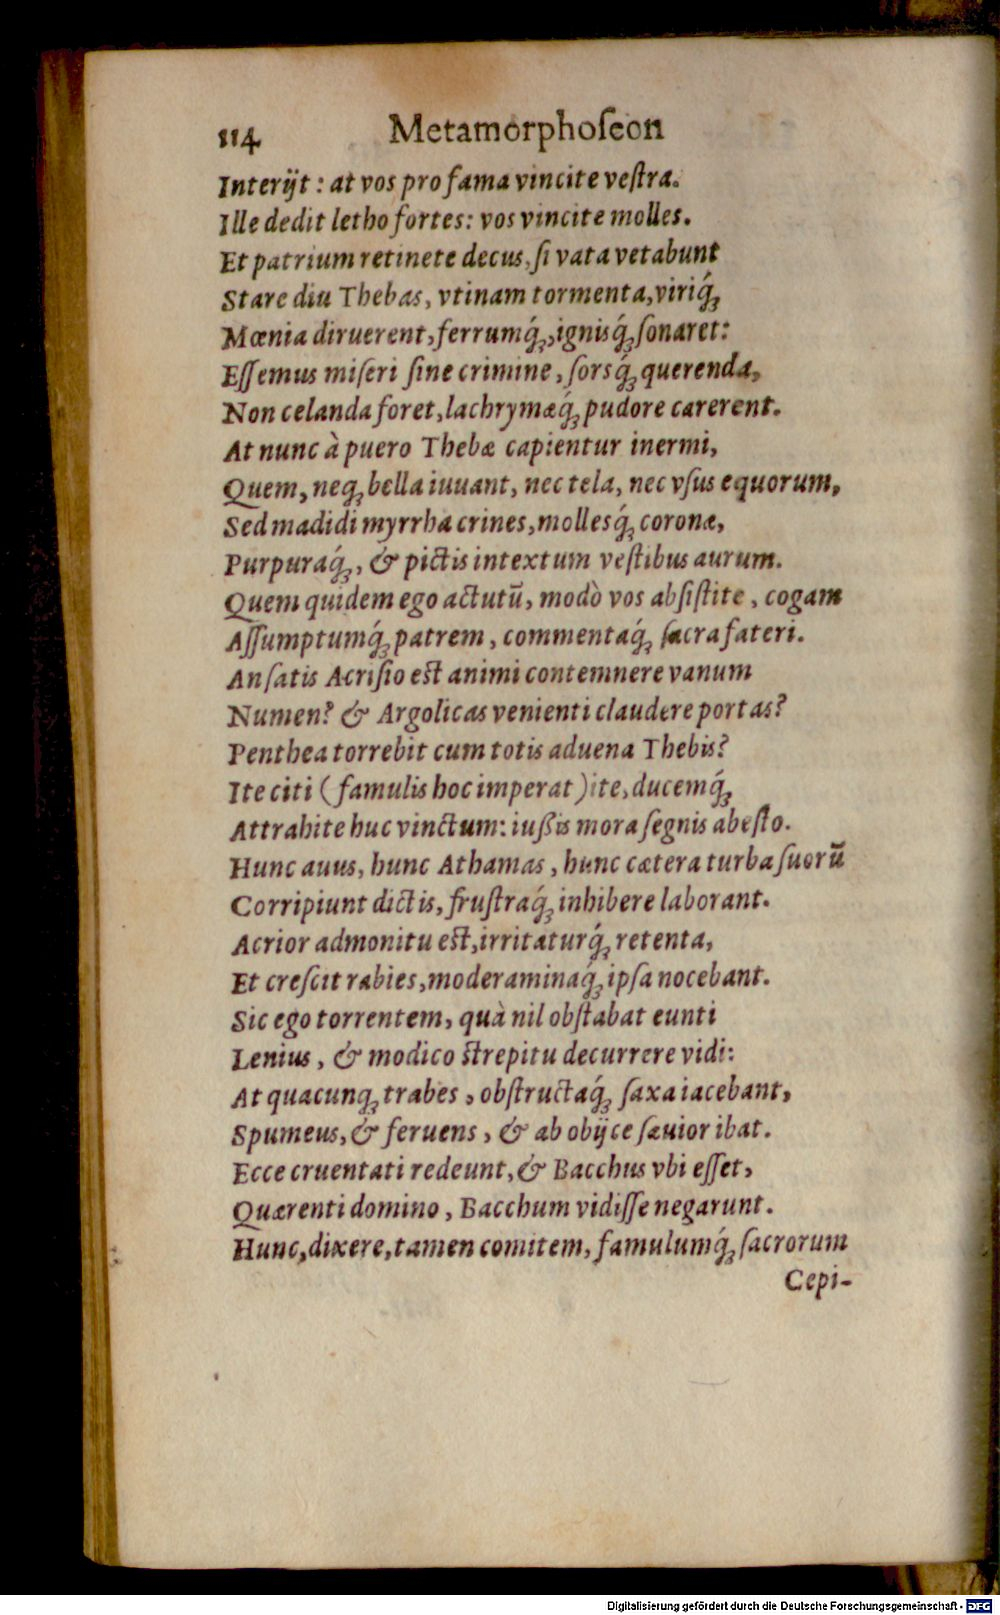 114 Metamorphoſeon
Interijt : at vos pro fama vincite veſtra.
Ille dedit letho fortes: vos vincite molles.
Et patrium retinete decus, ſi vata vetabunt
Stare diu Thebas, vtinam tormenta, viriq́;
Mœnia diruerent, ferrumq́;, ignisq́; ſonaret:
Eſſemus miſeri ſine crimine, ſorsq́; querenda,
Non celanda foret, lachrymæq́; pudore carerent.
At nunc à puero Thebæ capientur inermi,
Quem, neq; bella iuuant, nec tela, nec vſus equorum,
Sed madidi myrrha crines, mollesq́; coronæ,
Purpuraq́;, & pictis intextum veſtibus aurum.
Quem quidem ego actutū, modò vos abſiſtite, cogam
Aſſumptumq́; patrem, commentaq́; ſacra fateri.
An ſatis Acriſio est animi contemnere vanum
Numen? & Argolicas venienti claudere portas?
Penthea torrebit cum totis aduena Thebis?
Ite citi (famulis hoc imperat) ite, ducemq́;
Attrahite huc vinctum: iußis mora ſegnis abeſto.
Hunc auus, hunc Athamas, hunc cætera turba ſuorū
Corripiunt dictis, fruſtraq́; inhibere laborant.
Acrior admonitu est, irritaturq́; retenta,
Et creſcit rabies, moderaminaq́; ipſa nocebant.
Sic ego torrentem, quà nil obſtabat eunti
Lenius, & modico strepitu decurrere vidi:
At quacunq; trabes, obſtructaq́; ſaxa iacebant,
Spumeus, & feruens, & ab obijce ſæuior ibat.
Ecce cruentati redeunt, & Bacchus vbi eſſet,
Quærenti domino, Bacchum vidiſſe negarunt.
Hunc, dixere, tamen comitem, famulumq́; ſacrorum
Cepi-
Digitalisierung gefördert durch die Deutsche Forschungsgemeinschaft - DFG